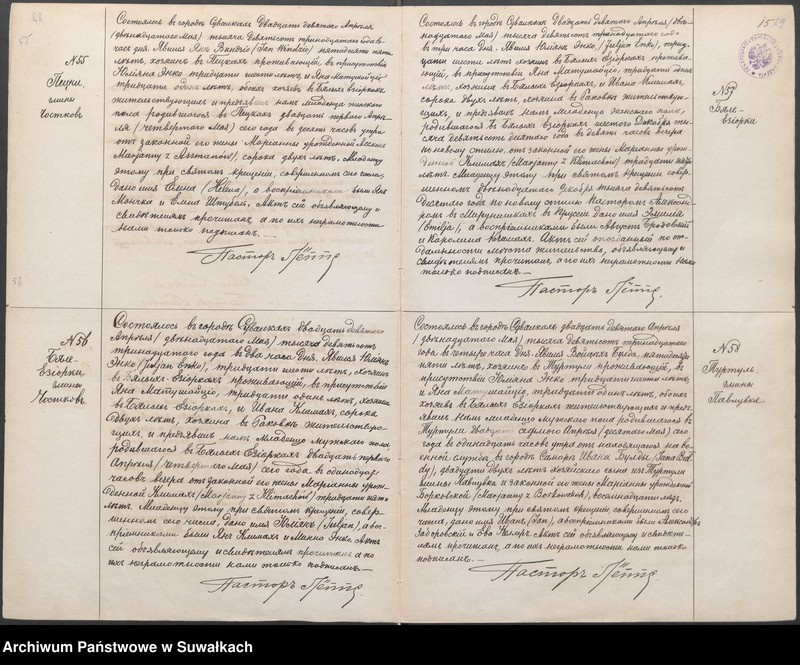 №55
Пецки,
гмины
Чостков.
Состоялось въ городѣ Сувалкахъ двадцать девятаго Апрѣля
(двѣнадцатаго Мая) тысяча девятьсотъ тринадцатаго года въ
часъ дня. Явился Янъ (Jan), пятидесяти пяти
лѣтъ, хозяинъ въ Пецкахъ проживающій, въ присутствіи
Юліяна Энко тридцати шести лѣтъ, и Яна Матулайціе
тридцати одного лѣтъ, обоихъ хозяевъ въ Бялыхъ Езіоркахъ
жительствующихъ и предъявилъ намъ младенца женскаго
пола родившагося въ Пецкахъ двадцать перваго Апрѣ-
ля (четвертаго Мая) сего года въ десять часовъ утра
отъ законной его жены Маріанны урожденной
(Maryanny z), сорока двухъ лѣтъ. Младенцу
этому при святомъ крещеніи, совершенномъ сего числа,
дано имя Елена (Helena), а воспріемниками были Янъ
и Елена Штубовъ. Актъ сей объявляющему и
свидѣтелямъ прочитанъ, а по ихъ неграмотности
нами только подписанъ.—
Пасторъ
№56
Бяле-
Езіорки
гмины
Чостковъ.
Состоялось въ городѣ Сувалкахъ двадцать девятаго
Апрѣля (двѣнадцатаго Мая) тысяча девятьсотъ
тринадцатаго года въ два часа дня. Явился Юліянъ
Энко (Juljan Enko), тридцати шести лѣтъ, хозяинъ
въ Бялыхъ Езіоркахъ проживающій, въ присутствіи
Яна Матулайціе, тридцати одного лѣтъ, хозяина
въ Бялыхъ Езіоркахъ, и Ивана Климахъ, сорока
двухъ лѣтъ, хозяина въ Раковкѣ жительствую-
щихъ, и предъявилъ намъ младенца мужскаго пола
родившагося въ Бялыхъ Езіоркахъ двадцать перваго
Апрѣля (четвертаго Мая) сего года въ одиннадцать
часовъ вечера отъ законной его жены Маріанны урож-
денной Климахъ (Maryanny z Klimachów) тридцати
лѣтъ. Младенцу этому при святомъ крещеніи, совер-
шенномъ сего числа, дано имя Юліянъ (Juljan), а вос-
пріемниками были Янъ Климахъ и Энко. Актъ
сей объявляющему и свидѣтелямъ прочитанъ а по
ихъ неграмотности нами только подписанъ.—
Пасторъ
№57
Бяле-
Езіорки
Состоялось въ городѣ Сувалкахъ двадцать девятаго Апрѣля (двѣ-
надцатаго Мая) тысяча девятьсотъ тринадцатаго года
въ три часа дня. Явился Юліянъ Энко (Juljan Enko), трид-
цати шести лѣтъ хозяинъ въ Бялыхъ Езіоркахъ прожива-
ющій, въ присутствіи Яна Матулайціе, тридцати одного
лѣтъ, хозяина въ Бялыхъ Езіоркахъ, и Ивана Климахъ,
сорока двухъ лѣтъ, хозяина въ Раковкѣ жительствую-
щихъ, и предъявилъ намъ младенца женскаго пола,
родившагося въ Бялыхъ Езіоркахъ шестого Декабря ты-
сяча девятьсотъ десятаго года въ девять часовъ вечера
по новому стилю, отъ законной его жены Маріанны урож-
денной Климахъ (Maryanny z Klimachów) тридцати
лѣтъ. Младенцу этому при святомъ крещеніи совер-
шенномъ двѣнадцатаго Декабря тысяча девятьсотъ
десятаго года по новому стилю Пасторомъ
въ Мерунишкахъ въ Пруссіи дано имя Эмилія
(Emilja), а воспріемниками были Августъ
и Каролина Климахъ. Актъ сей опоздавшій по от-
даленности мѣста жительства, объявляющему и
свидѣтелямъ прочитанъ, а по ихъ неграмотности нами
только подписанъ.—
Пасторъ
№58
Туртуль,
гмины
Павлувка
Состоялось въ городѣ Сувалкахъ двадцать девятаго Апрѣля
(двѣнадцатаго Мая) тысяча девятьсотъ тринадцатаго
года въ четыре часа дня. Явился Войцѣхъ, пятидесяти
пяти лѣтъ, хозяинъ въ Туртулѣ проживающій, въ
присутствіи Юліяна Энко тридцати шести лѣтъ,
и Яна Матулайціе, тридцати одного лѣтъ, обоихъ
хозяевъ въ Бялыхъ Езіоркахъ жительствующихъ и предъ-
явилъ намъ младенца мужскаго пола родившагося въ
Туртулѣ двадцать седьмого Апрѣля (десятаго Мая) сего
года въ одиннадцать часовъ утра отъ находящагося на во-
енной службѣ въ городѣ Самарѣ Ивана
двадцати двухъ лѣтъ хозяйскаго сына изъ Туртуля
гмины Павлувка и законной его жены Маріанны урожденной
Борковской (Maryanny z Borkowskich), восемнадцати лѣтъ.
Младенцу этому, при святомъ крещеніи, совершенномъ сего
числа, дано имя Иванъ, (Jan), а воспріемниками были Александръ
Заборовскій и Ева. Актъ сей объявляющему и свидѣте-
лямъ прочитанъ, а по ихъ неграмотности нами только
подписанъ.—
Пасторъ
Archiwum Państwowe w Suwałkach